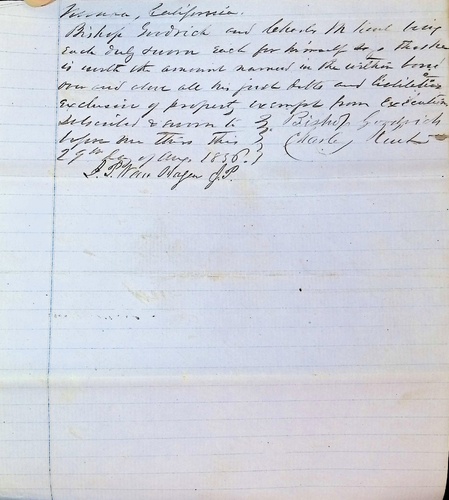 California.
Bishop Goodrich and Charles M Kent being
each duly sworn each for himself says that he
is worth the amount named in the within bond
over and above all his just debts and liabilities
exclusive of property exempt from execution
subscribed & sworn to } Bishop Goodrich
before me this this } Charles Kent
29th day of Aug. 1856. }
Van Hagen J.P.